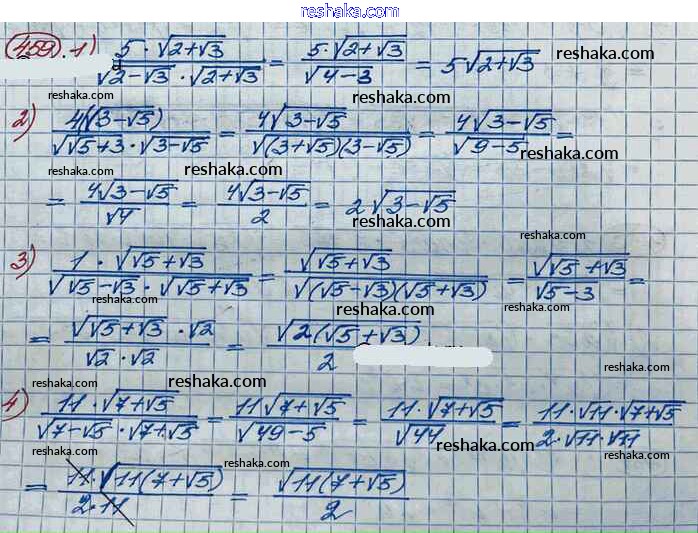 reshaka.com
459. 1) 5 · √(2+√3) / (√(2−√3) · √(2+√3)) = 5 · √(2+√3) / √(4−3) = 5√(2+√3)
reshaka.com reshaka.com reshaka.com
2) 4(√(3−√5)) / (√(√5+3) · √(3−√5)) = 4√(3−√5) / √((3+√5)(3−√5)) = 4√(3−√5) / √(9−5) =
reshaka.com reshaka.com reshaka.com
= 4√(3−√5) / √4 = 4√(3−√5) / 2 = 2√(3−√5)
reshaka.com reshaka.com
3) 1 · √(√5+√3) / (√(√5−√3) · √(√5+√3)) = √(√5+√3) / √((√5−√3)(√5+√3)) = √(√5+√3) / √(5−3) =
reshaka.com reshaka.com reshaka.com
= √(√5+√3) · √2 / (√2 · √2) = √(2(√5+√3)) / 2
reshaka.com reshaka.com reshaka.com
4) 11 · √(7+√5) / (√(7−√5) · √(7+√5)) = 11√(7+√5) / √(49−5) = 11 · √(7+√5) / √44 = 11 · √11 · √(7+√5) / (2 · √11 · √11)
reshaka.com reshaka.com reshaka.com reshaka.com
= 11 · √(11(7+√5)) / (2 · 11) = √(11(7+√5)) / 2
reshaka.com reshaka.com reshaka.com